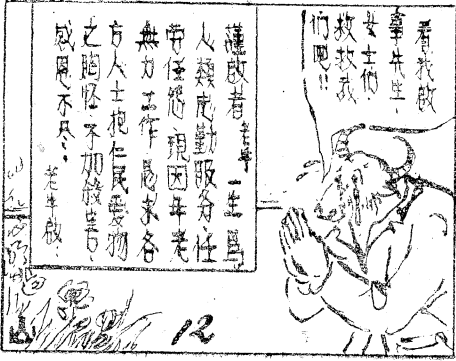 看我啟
事先生.
女士們.
救救我
們吧!!
謹啟者老牛一生爲
人類忠勤服务.任
劳任怨.現因年老
無力工作.懇求各
方人士抱仁民愛物
之胸怀.予加發善.
感恩不尽.
老牛啟.
12